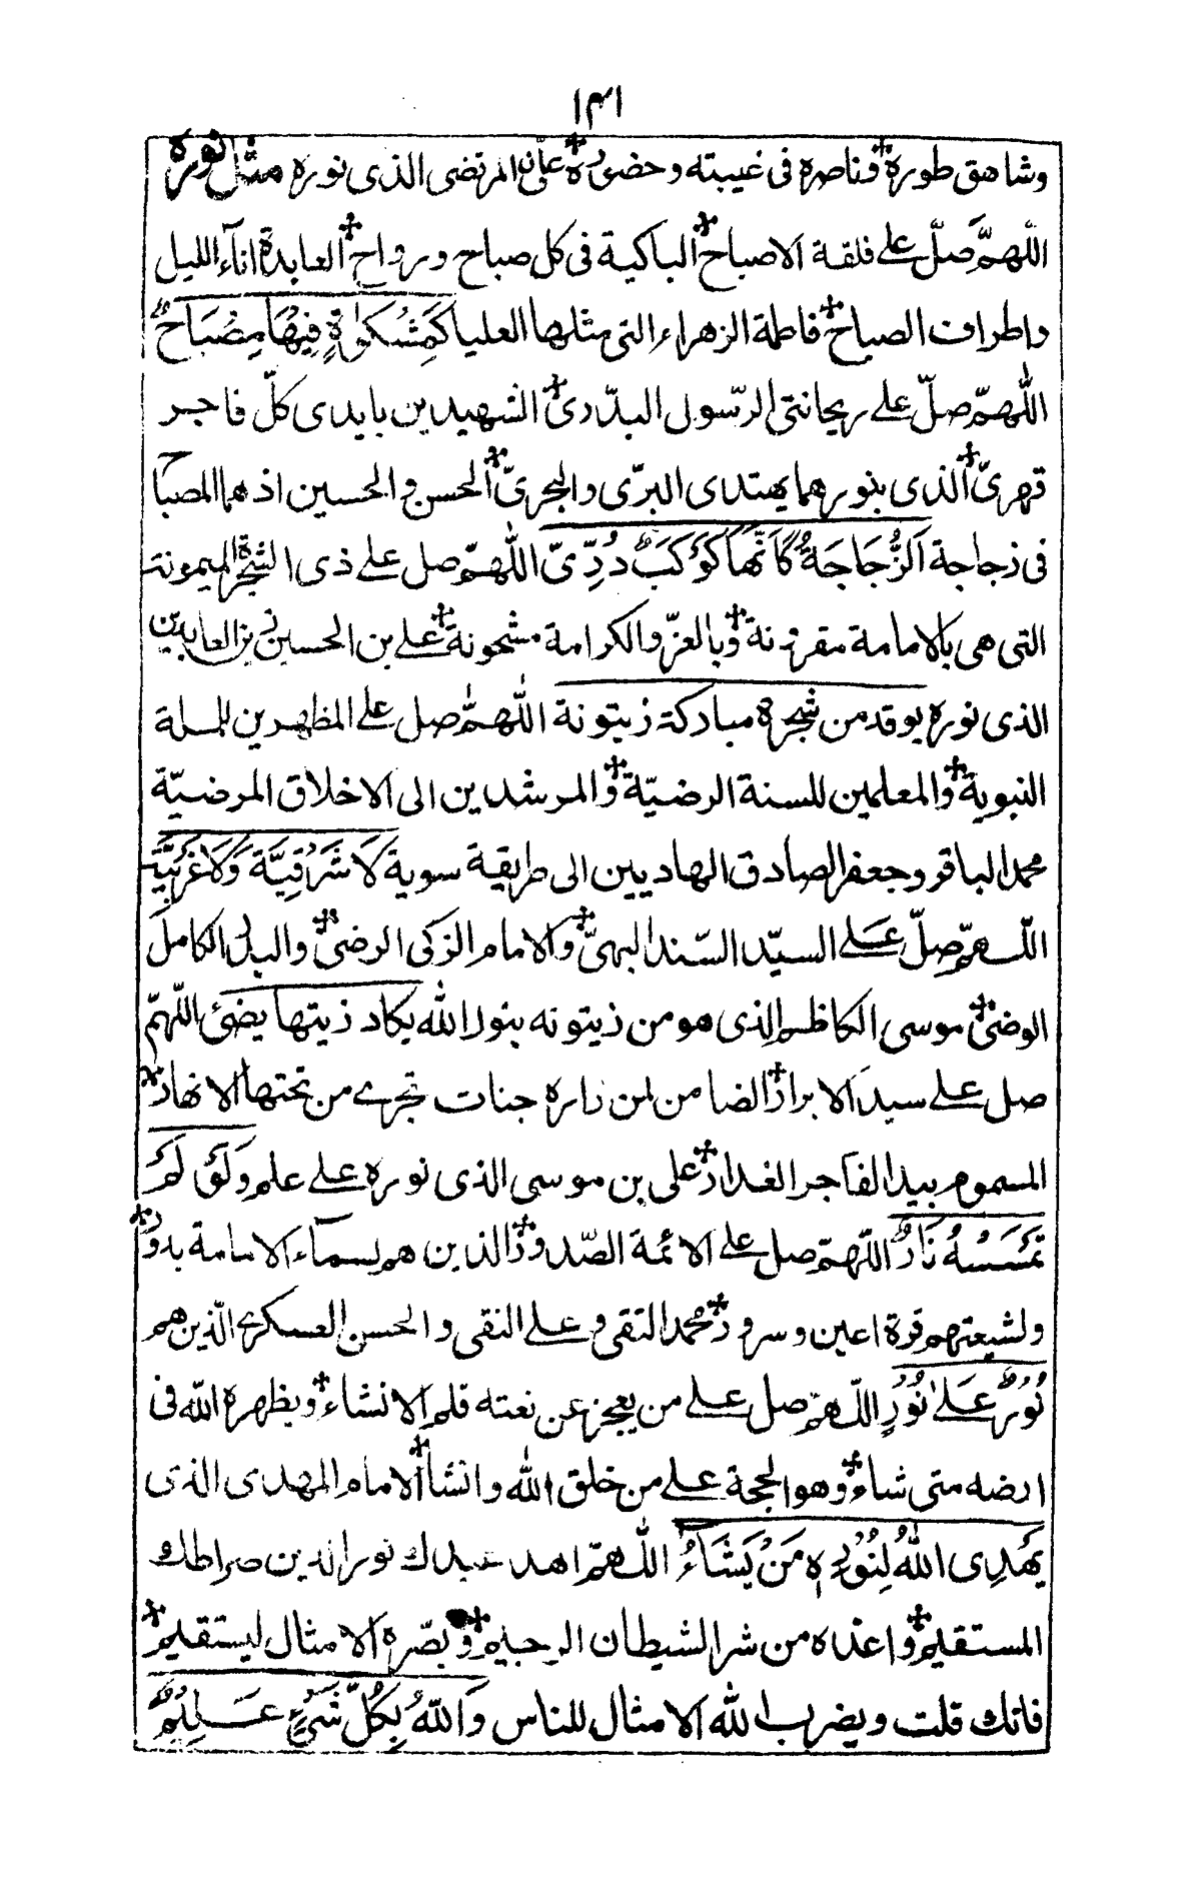 ۱۴۱
وشاهق طوره وناصره فى غيبته وحضوره على المرتضى الذى نوره مثل نوره
اللّهمّ صلّ على فلقة الاصباح الباكية فى كل صباح ورواح العابدة اناء الليل
واطراف الصباح فاطمة الزهراء التى مثلها العليا كَمِشْكٰوةٍ فِيْهَا مِصْبَاحٌ
اللّٰهمّ صلّ على ريحانتى الرّسول البدّرىّ الشهيدين بايدى كلّ فاجر
قهرىّ الذى بنورهما يهتدى البرّى والبحرىّ الحسن والحسين اذ هما المصباح
فى زجاجة اَلزُّجَاجَةُ كَاَنَّهَا كَوْكَبٌ دُرِّىّ اللّٰهمّ صل على ذى الشجرة الميمونة
التى هى بالامامة مقرونة وبالعزّ والكرامة مشحونة على بن الحسين زين العابدين
الذى نوره يوقد من شجرة مباركة زيتونة اللّٰهمّ صل على المظهرين للملة
النبوية والمعلمين للسنة الرضيّة والمرشدين الى الاخلاق المرضيّة
محمد الباقر وجعفر الصادق الهاديين الى طريقة سوية لَا شَرْقِيَّةٍ وَلَا غَرْبِيَّةٍ
اللّهمّ صلّ على السيّد السّند البهىّ والامام الزكى الرضىّ والبدل الكامل
الوضىّ موسى الكاظم الذى هو من زيتونه بنور الله يكاد زيتها يضئ اللّهمّ
صل على سيد الابرار الضامن لمن زاره جنات تجرى من تحتها الانهار
المسموم بيد الفاجر الغدار على بن موسى الذى نوره على علم وَلَوْ لَمْ
تَمْسَسْهُ نَارٌ اللّهمّ صل على الائمة الصّدور الذين هم لسماء الامامة بدور
ولشيعتهم قرة اعين وسرور محمد التقى وعلى النقى والحسن العسكرى الّذين هم
نُوْرٌ عَلٰى نُوْرٍ اللّهمّ صل على من يعجز عن نعته قلم الانشاء ويظهره الله فى
ارضه متى شاء وهو الحجة على من خلق الله وانشأ الامام المهدى الذى
يَهْدِى اللّٰهُ لِنُوْرِهٖ مَنْ يَّشَاءُ اللّهمّ اهد عبدك نور الدين صراطك
المستقيم واعذه من شر الشيطان الرجيم وبصّره الامثال ليستقيم
فانك قلت ويضرب الله الامثال للناس وَاللّٰهُ بِكُلِّ شَىْءٍ عَلِيْمٌ